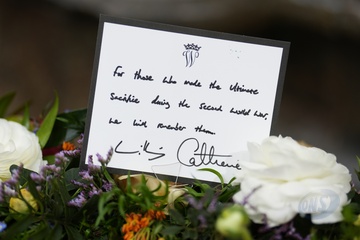 For those who made the ultimate
Sacrifice during the Second World War,
we will remember them.
Catherine